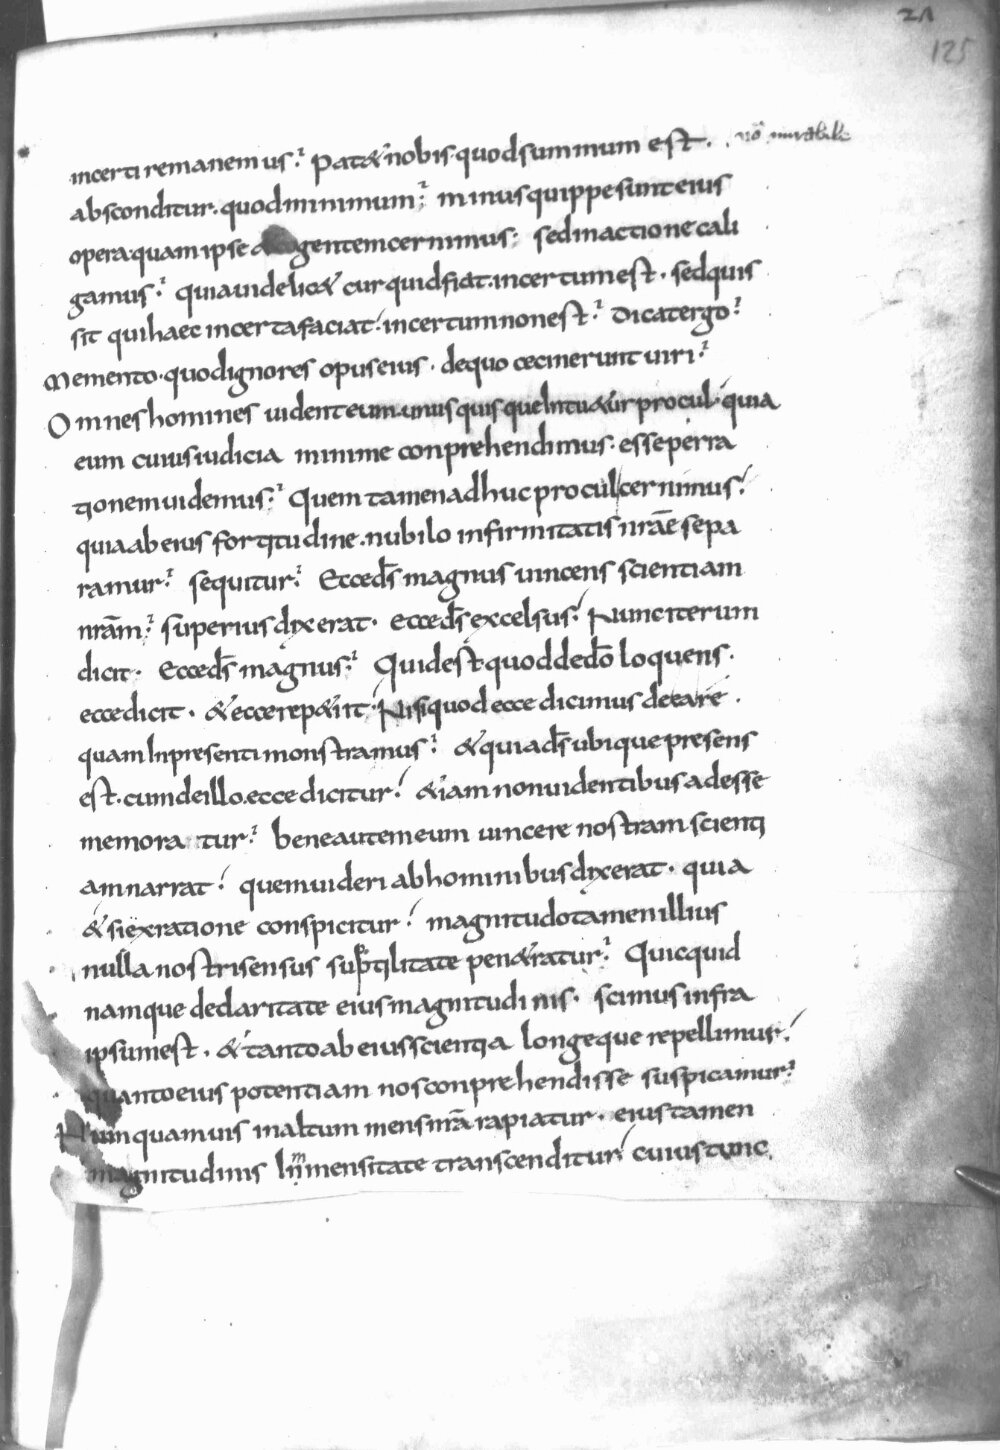 21
125
incerti remanemus. Pat&nobis quod summum est. nō mirabile
absconditur. quod minimum. minus quippe sunt eius
opera quam ipse & cogentem cernimus. sed in actione cali
gamus. quia uidelic& cur quid fiat. incertum est. sed quis
sit qui haec incerta faciat. incertum non est. Dicat ergo.
Memento. quod ignores opus eius. de quo cecinerunt uiri.
Omnes homines uident eum. unusquisque Intu&ur procul. quia
eum cuius iudicia minime conprehendimus. esse per ra
tionem uidemus. Quem tamen adhuc procul cernimus.
quia ab eius fortitudine. nubilo infirmitatis nrāe sepa
ramur. sequitur. Ecce d̄s magnus uincens scientiam
nrām. superius dixerat. ecce d̄s excelsus. Nunc iterum
dicit. Ecce d̄s magnus. Quid est quod de dō loquens.
ecce dicit. & ecce rep&it. Nisi quod ecce dicimus de ea re.
quam Inpresenti monstramus. & quia d̄s ubique presens
est. cum de illo. ecce dicitur. &iam non uidentibus adesse
memoratur. bene autem eum uincere nostram scienti
am narrat. quem uideri ab hominibus dixerat. quia
& si ex ratione conspicitur. magnitudo tamen illius
nulla nostri sensus subtilitate pen&ratur. Quicquid
namque de claritate eius magnitudinis. scimus infra
ipsum est. & tanto ab eius scientia longeque repellimur.
quanto eius potentiam nos conprehendisse suspicamur.
Nam quamuis in altum mens nrā rapiatur. eius tamen
magnitudinis Inmensitate transcenditur. cuius tunc